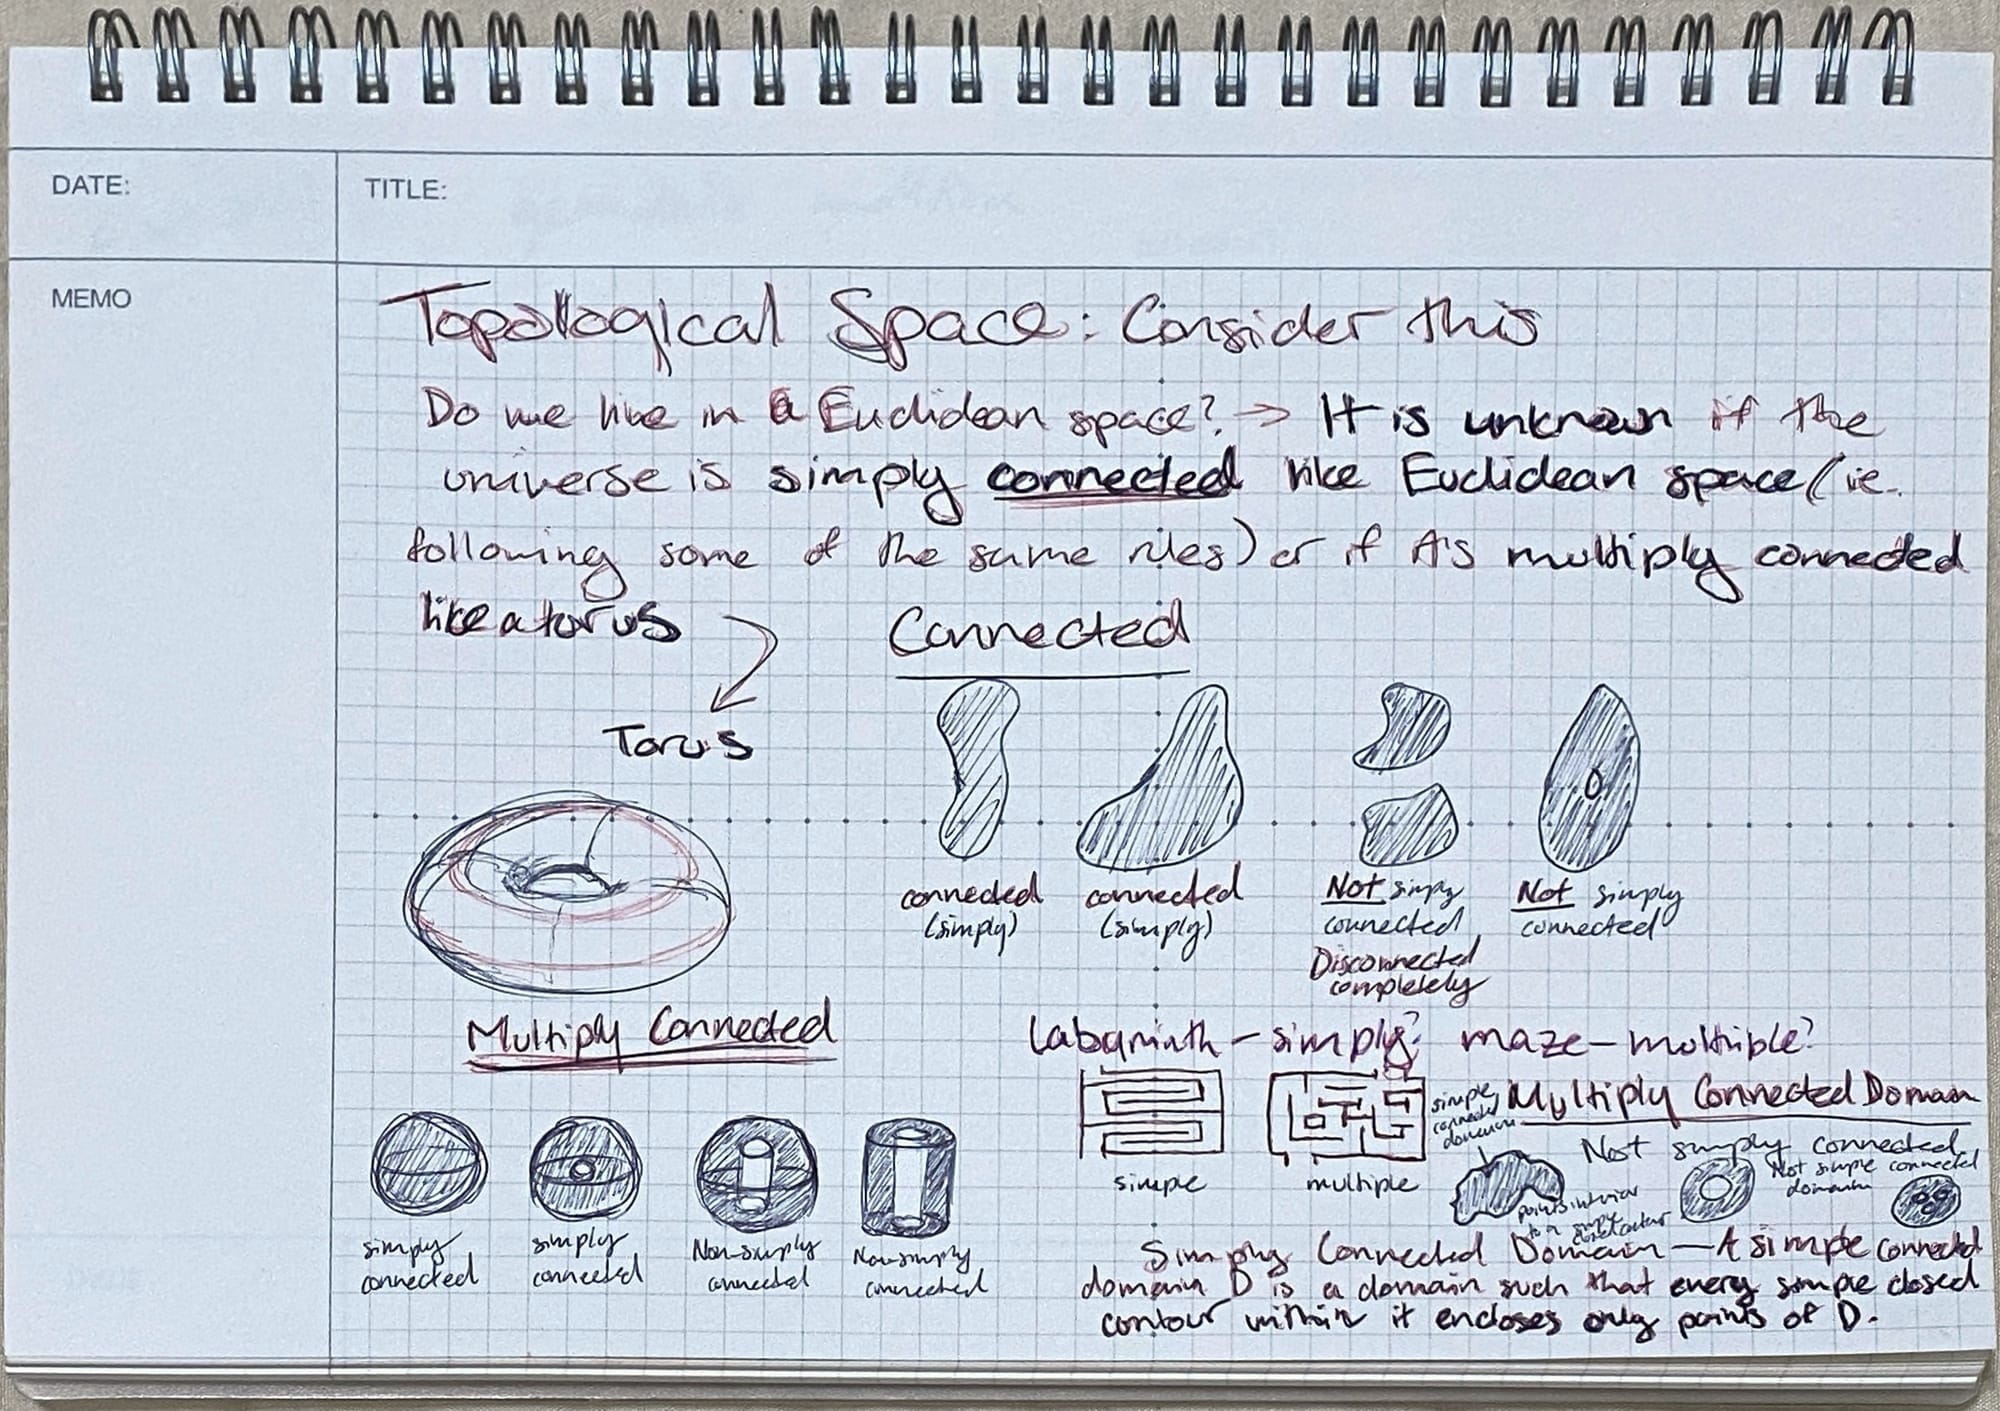 DATE:
TITLE:
MEMO
Topological Space: Consider this
Do we live in a Euclidean space? → It is unknown if the
universe is simply connected like Euclidean space (ie.
following some of the same rules) or if it's multiply connected
like a torus
Connected
Torus
connected
(simply)
connected
(simply)
Not simply
connected
Disconnected
completely
Not simply
connected
Multiply Connected
simply
connected
simply
connected
Non-simply
connected
Non-simply
connected
Labaryinth - simply? maze - multiple?
simple
multiple
Multiply Connected Domain
simple
connected
domain
Not simply connected
Not simple connected
domain
points interior
to a simple
closed contour
Simply Connected Domain — A simple connected
domain D is a domain such that every simple closed
contour within it encloses only points of D.